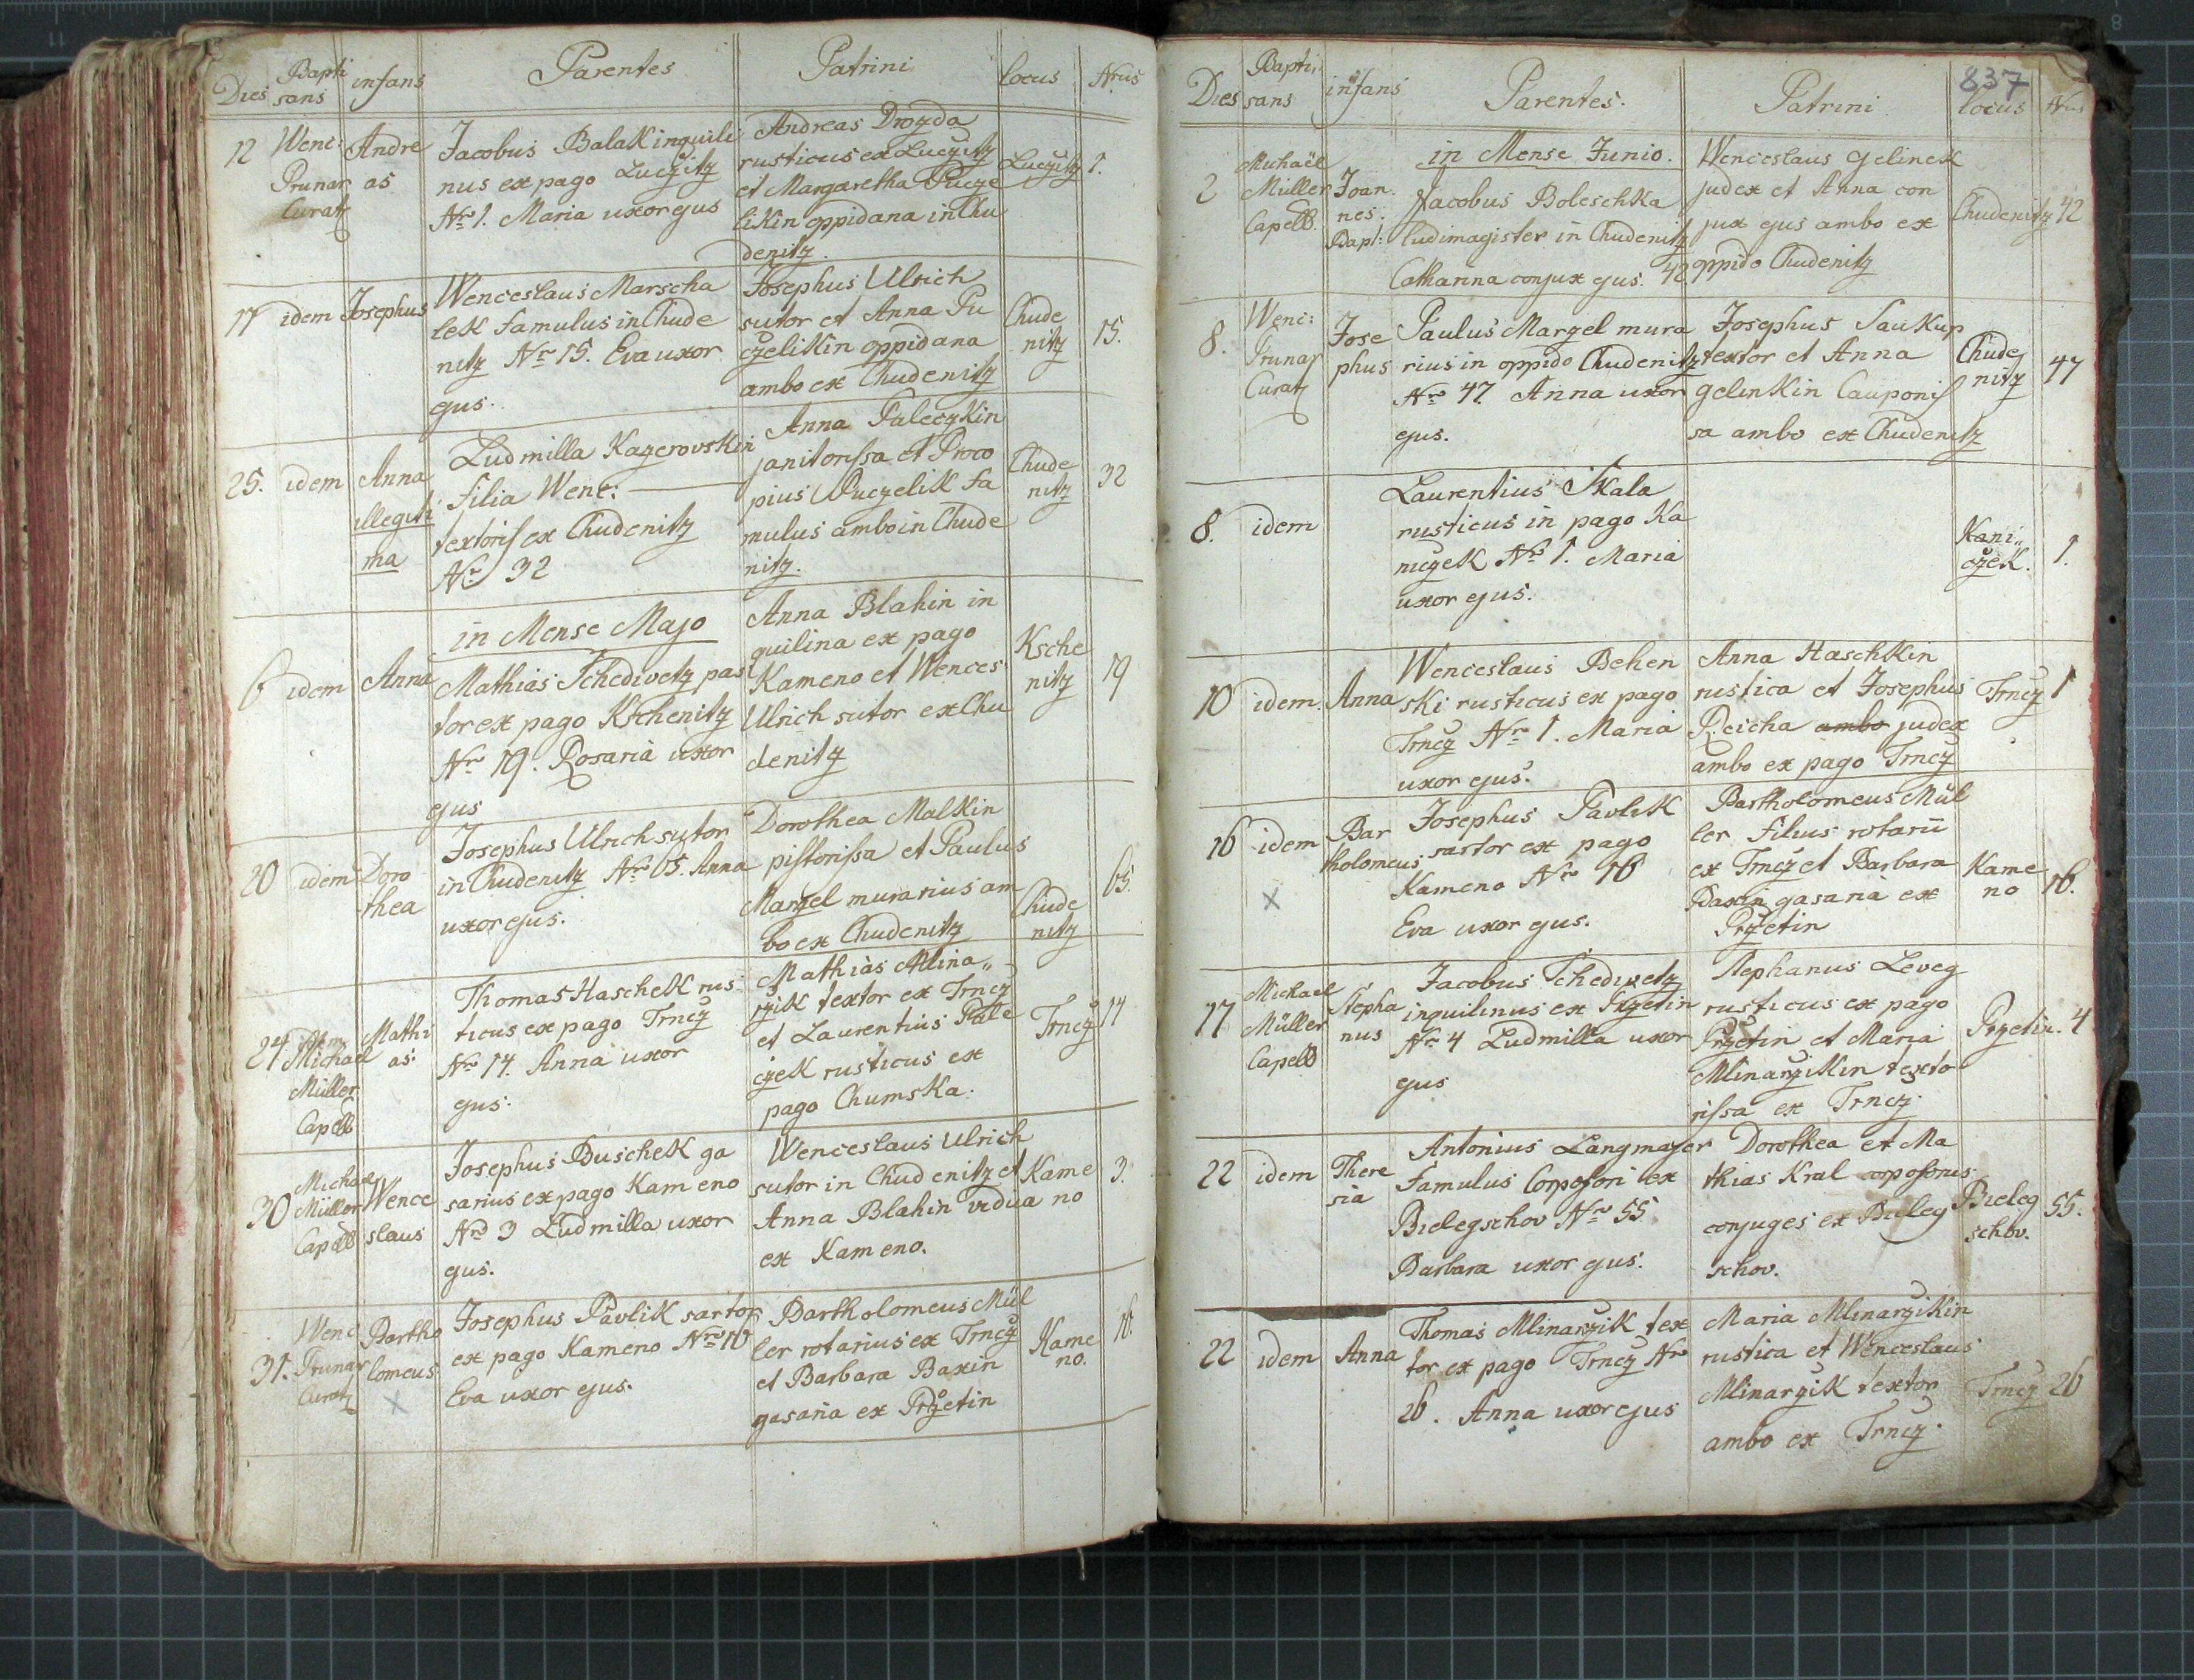 Dies Baptisans infans Parentes Patrini locus Nrus
12 Wenc: Prunar Curatz
Andreas
Jacobus Balak inquili
nus ex pago Luczitz
Nro 1. Maria uxor ejus
Andreas Drozda
rusticus ex Luczitz
et Margaretha Pucze
likin oppidana in Chu
denitz.
Luczitz 1.
17 idem Josephus
Wenceslaus Marscha
lek famulus in Chude
nitz Nr 15. Eva uxor
ejus.
Josephus Ulrich
sutor et Anna Pu
czelikin oppidana
ambo ex Chudenitz
Chude
nitz 15.
25. idem Anna
illegiti
ma
Ludmilla Kazerovskin
filia Wenc:
textoris ex Chudenitz
Nro 32
Anna Paleczkin
janitorissa et Proco
pius Puczelik fa
mulus ambo in Chude
nitz.
Chude
nitz 32
in Mense Majo
6 idem Anna
Mathias Schedivetz pas
tor ex pago Kschenitz
Nro 19. Rosaria uxor
ejus
Anna Blahin in
quilina ex pago
Kameno et Wences
Ulrich sutor ex Chu
denitz
Ksche
nitz 19
20 idem Doro
thea
Josephus Ulrich sutor
in Chudenitz Nro 65. Anna
uxor ejus.
Dorothea Malkin
pistorissa et Paulus
Marzel murarius am
bo ex Chudenitz
Chude
nitz 65.
24 Michael
Müller
Capell
Mathi
as
Thomas Haschek rus
ticus ex pago Trncz
Nro 14. Anna uxor
ejus.
Mathias Mlina„
rzik textor ex Trncz
et Laurentius Pale
czek rusticus ex
pago Chumska.
Trncz 14
30 Michael
Müller
Capell
Wence
slaus
Josephus Duschek ga
sarius ex pago Kameno
Nro 3 Ludmilla uxor
ejus.
Wenceslaus Ulrich
sutor in Chudenitz et
Anna Blahin vidua
ex Kameno.
Kame
no 3.
31. Wenc
Prunar
Curatz
Bartho
lomeus
x
Josephus Pavlik sartor
ex pago Kameno Nro 16
Eva uxor ejus.
Bartholomeus Mül
ler rotarius ex Trncz
et Barbara Baxin
gasaria ex Przetin
Kame
no. 16.
837
Dies Bapti„
sans infans Parentes. Patrini locus Nrus
in Mense Junio.
2 Michaël
Müller
Capell.
Joan
nes.
Bapt:
Jacobus Boleschka
ludimagister in Chudenitz
Catharina conjux ejus. 42
Wenceslaus Gelinek
judex et Anna con
jux ejus ambo ex
oppido Chudenitz
Chudenitz 42
8. Wenc:
Prunar
Curatz
Jose
phus
Paulus Marzel mura
rius in oppido Chudenitz
Nro 47 Anna uxor
ejus.
Josephus Saukup
textor et Anna
Gelinkin Cauponis
sa ambo ex Chudenitz
Chude
nitz 47
8. idem
Laurentius Skala
rusticus in pago Ka
niczek Nro 1. Maria
uxor ejus.
Kani„
czek. 1.
10 idem. Anna
Wenceslaus Behen
ski rusticus ex pago
Trncz Nro 1. Maria
uxor ejus.
Anna Haschkin
rustica et Josephus
Reicha ambo judex
ambo ex pago Trncz
Trncz 1
16 idem
x
Bar
tholomeus
Josephus Pavlik
sartor ex pago
Kameno Nro 16
Eva uxor ejus.
Bartholomeus Mül
ler filius rotarii
ex Trncz et Barbara
Baxin gasaria ex
Przetin
Kame
no 16.
17 Michael
Müller
Capell
Stepha
nus
Jacobus Schedivetz
inquilinus ex Przetin
Nro 4 Ludmilla uxor
ejus
Stephanus Leveg
rusticus ex pago
Przetin et Maria
Mlinarzikin texto
rissa ex Trncz.
Przetin. 4
22 idem There
sia
Antonius Langmajer
famulus Corposori ex
Bielegschov Nro 55
Barbara uxor ejus.
Dorothea et Ma
thias Kral corposoris
conjuges ex Bieleg
schov.
Bieleg
schov. 55.
22 idem Anna
Thomas Mlinarzik tex
tor ex pago Trncz Nro
26. Anna uxor ejus
Maria Mlinarzikin
rustica et Wenceslaus
Mlinarzik textor
ambo ex Trncz.
Trncz 26